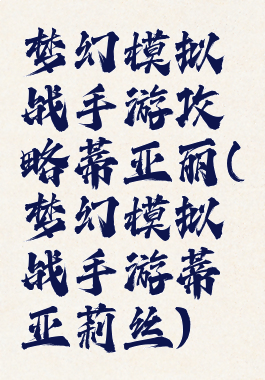 梦幻模拟
战手游攻
略蒂亚丽(
梦幻模拟
战手游蒂
亚莉丝)